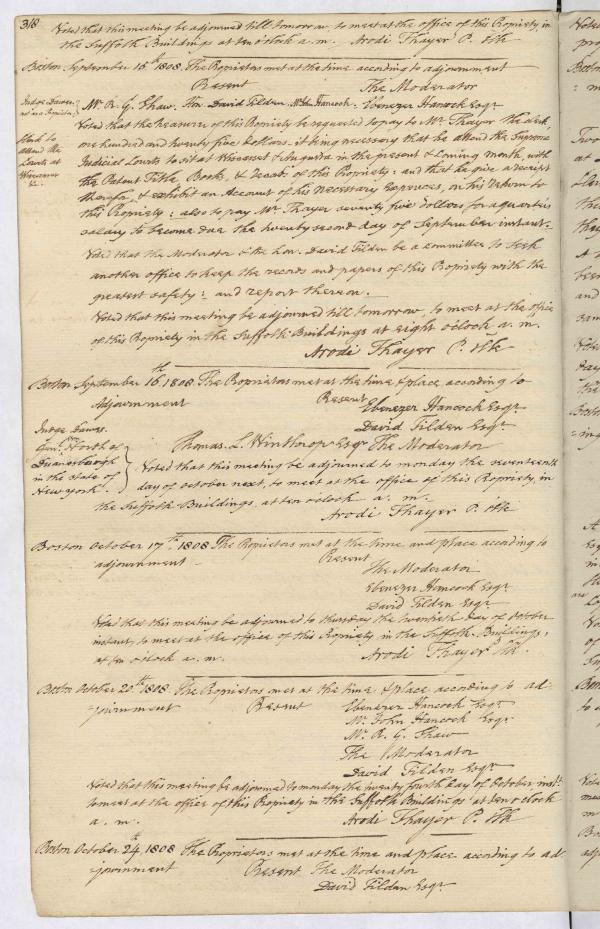 318
Voted that this meeting be adjourned till tomorrow to meet at the office of this Propriety, in
the Suffolk Buildings at ten o'clock a. m. Arodi Thayer P. Clk
Boston September 15th 1808. The Proprietors met at the time according to adjournment
Present The Moderator
Mr. R. G. Shaw. Hon. David Tilden. Mr. John Hancock. Ebenezer Hancock Esqr
Judge Dawes
Voted that the Treasurer of this Propriety be requested to pay to Mr. Thayer the Clerk
one hundred and twenty five dollars. it being necessary that he attend the Supreme
Clerk to
attend the
Courts at
Wiscasset
&c.
Judicial Courts to sit at Wiscasset & Augusta in the present & coming month, with
the Patent Title, Books, & Deeds of this Propriety: and that he give a receipt
therefor, & exhibit an Account of his necessary expences, on his return to
this Propriety: also to pay Mr. Thayer seventy five dollars for a quarter's
salary to become due the twenty second day of September instant.
Voted that the Moderator & the hon. David Tilden be a committee to seek
another office to keep the records and papers of this Propriety with the
greatest safety: and report thereon.
Voted that this meeting be adjourned till tomorrow, to meet at the office
of this Propriety in the Suffolk Buildings at eight o'clock a. m.
Arodi Thayer P. Clk
Boston September 16th 1808. The Proprietors met at the time & place according to
Adjournment Present
Ebenezer Hancock Esqr
David Tilden Esqr
Judge Dawes
Genl. Wm. North of
Duanesborough
in the State of
New York.
Thomas. L. Winthrop Esqr The Moderator
Voted that this meeting be adjourned to monday the seventeenth
day of october next, to meet at the office of this Propriety, in
the Suffolk Buildings, at ten o'clock a. m.
Arodi Thayer P. Clk
Boston October 17th 1808 The Proprietors met at the time and place according to
adjournment Present
The Moderator
Ebenezer Hancock Esqr
David Tilden Esqr
Voted that this meeting be adjourned to thursday the twentieth day of october
instant, to meet at the office of this Propriety in the Suffolk Buildings,
at ten o'clock a. m. Arodi Thayer P. Clk.
Boston October 20th 1808. The Proprietors met at the time & place according to ad-
=journment Present Ebenezer Hancock Esqr
Mr. John Hancock Esqr
Mr. R. G. Shaw
The Moderator
David Tilden Esqr
Voted that this meeting be adjourned to monday the twenty fourth day of October inst.
to meet at the office of this Propriety in the Suffolk Buildings at ten o'clock
a. m. Arodi Thayer P. Clk
Boston October 24th 1808 The Proprietors met at the time and place according to ad-
=journment Present The Moderator
David Tilden Esqr